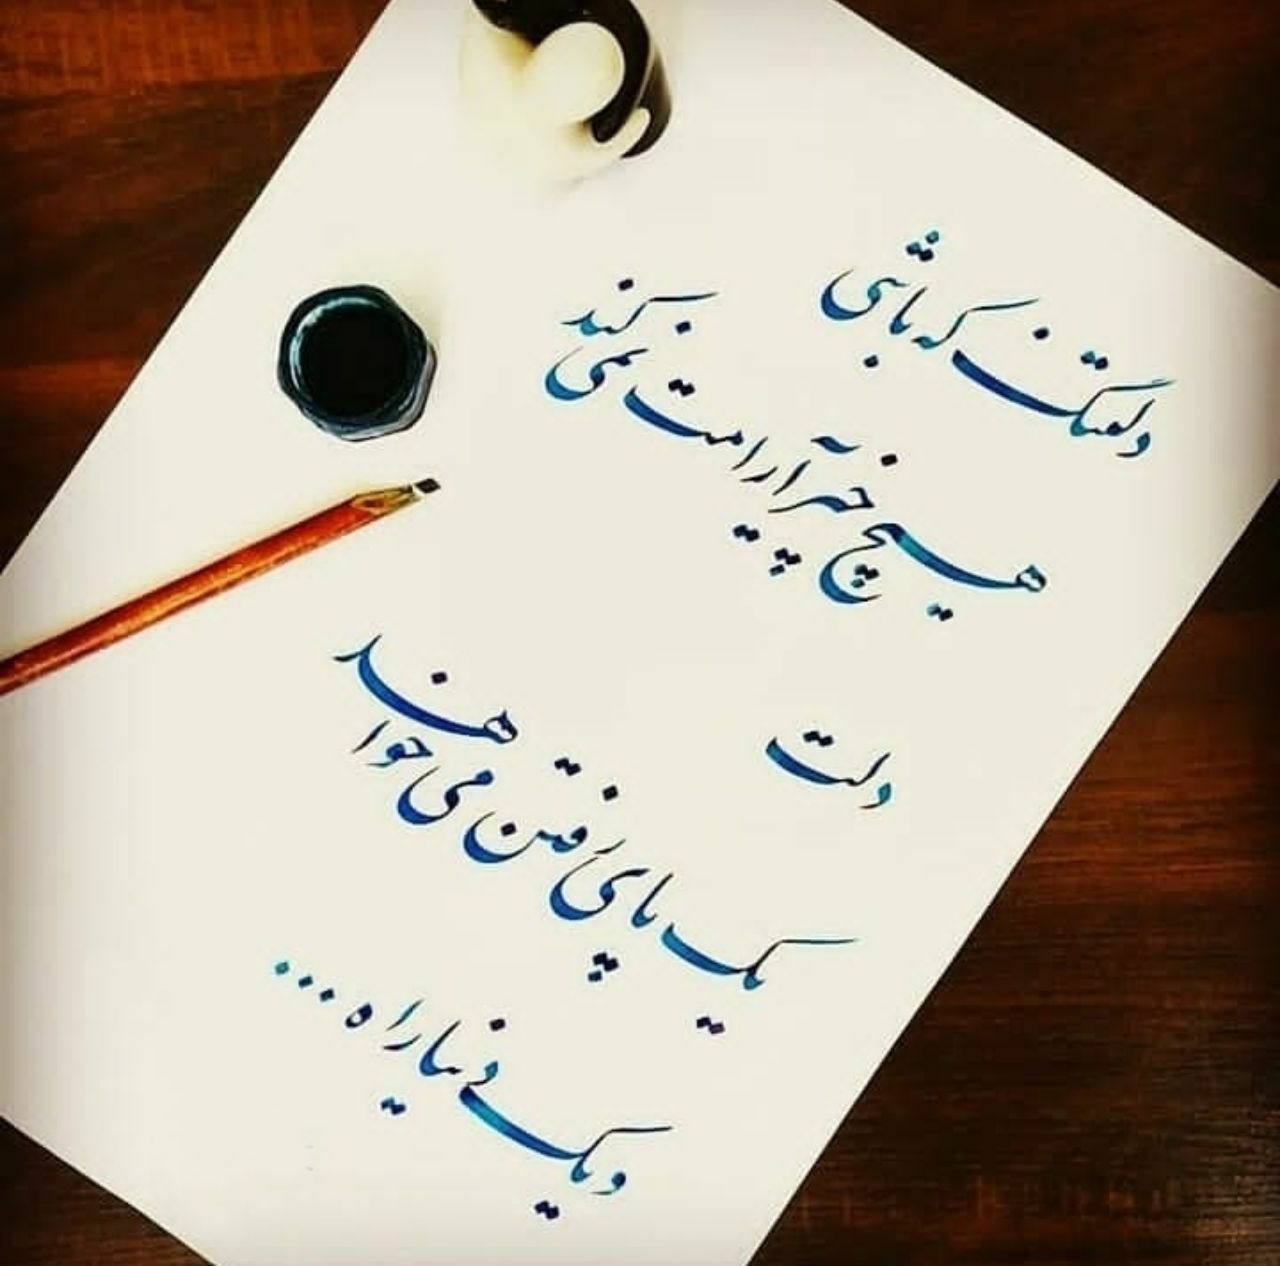 دلتنگ که باشی
هیچ چیز آرامت نمی کند
دلت
یک پای رفتن می خواهد
و یک دنیا راه ...